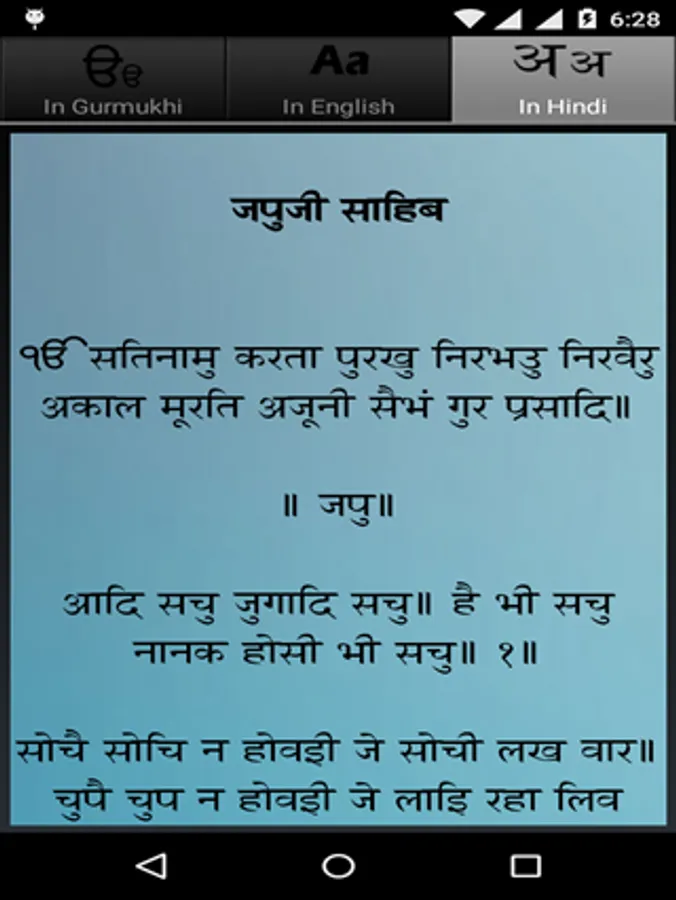 6:28
ੳ ੳ
In Gurmukhi
Aa
In English
अ अ
In Hindi
जपुजी साहिब
ੴ सतिनामु करता पुरखु निरभउ निरवैरु
अकाल मूरति अजूनी सैभं गुर प्रसादि॥
॥ जपु॥
आदि सचु जुगादि सचु॥ है भी सचु
नानक होसी भी सचु॥ १॥
सोचै सोचि न होवई जे सोची लख वार॥
चुपै चुप न होवई जे लाइ रहा लिव